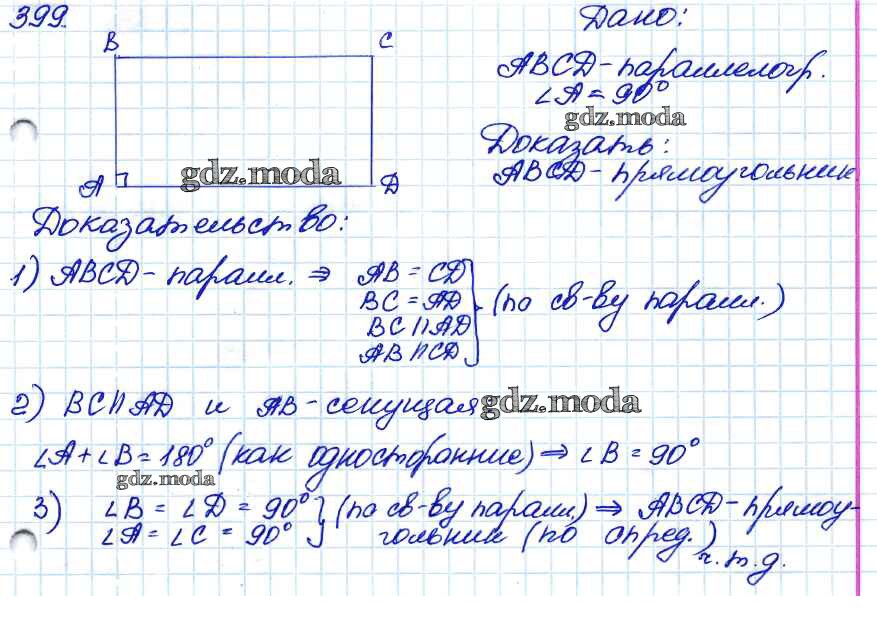 399.
Дано:
B C
ABCD - параллелогр.
∠A = 90°
gdz.moda
Доказать:
ABCD - прямоугольник
A gdz.moda D
Доказательство:
1) ABCD - паралл. ⇒ AB = CD
BC = AD
BC || AD
AB || CD
} (по св-ву паралл.)
2) BC || AD и AB - секущая gdz.moda
∠A + ∠B = 180° (как одностороннние) ⇒ ∠B = 90°
gdz.moda
3) ∠B = ∠D = 90° } (по св-ву паралл.) ⇒ ABCD - прямоу-
∠A = ∠C = 90° гольник (по опред.)
ч.т.д.